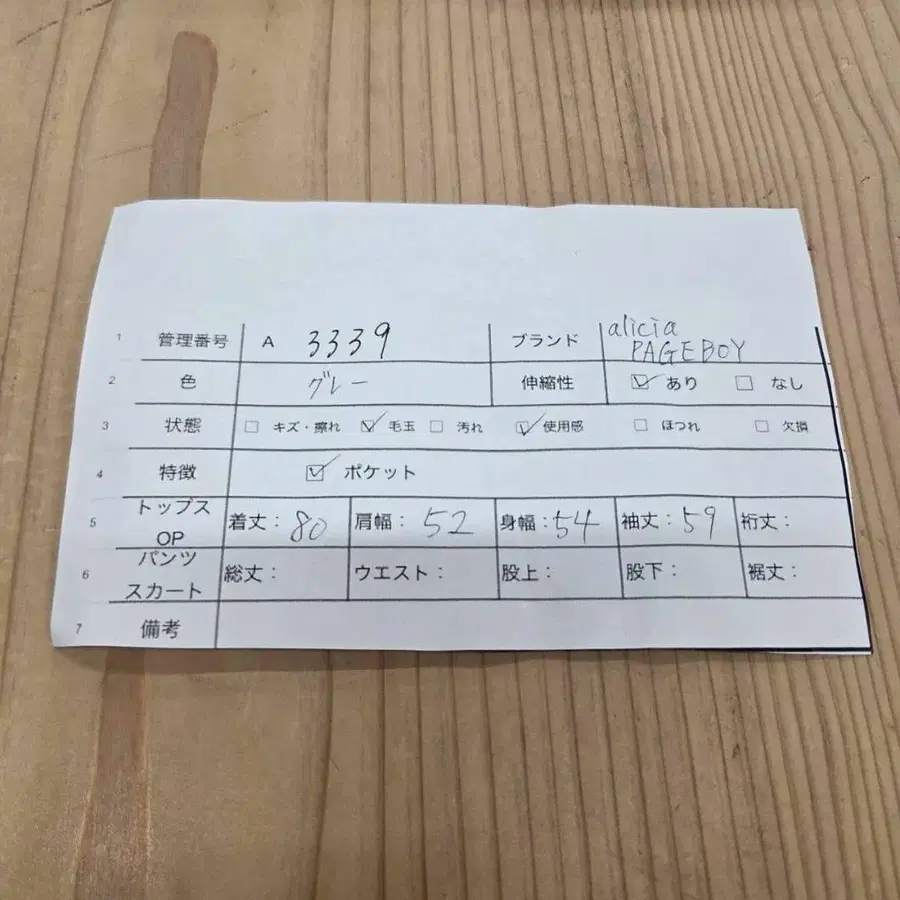 1 管理番号 A 3339 ブランド alicia PAGEBOY
2 色 グレー 伸縮性 ☑ あり ☐ なし
3 状態 ☐ キズ・擦れ ☑ 毛玉 ☐ 汚れ ☑ 使用感 ☐ ほつれ ☐ 欠損
4 特徴 ☑ ポケット
5 トップス OP 着丈: 80 肩幅: 52 身幅: 54 袖丈: 59 裄丈:
6 パンツ スカート 総丈: ウエスト: 股上: 股下: 裾丈:
7 備考